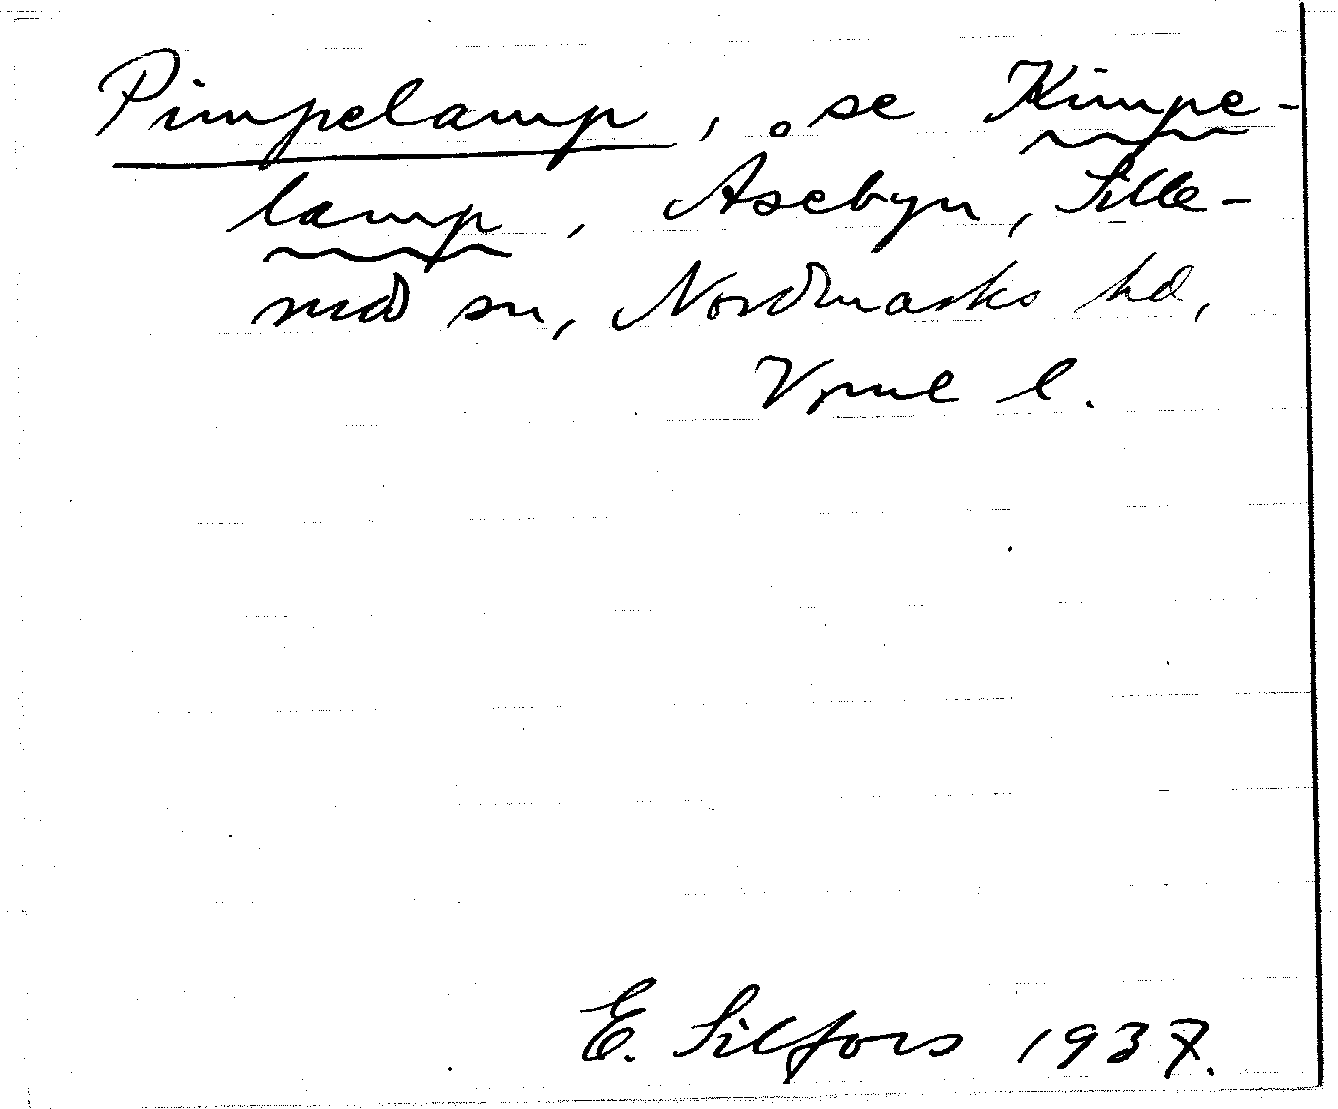 Pimpelamp, se Kimpe-
lamp, Åsebyn, Sille-
rud sn, Nordmarks hd,
Vrml l.
E. Silfors 1937.